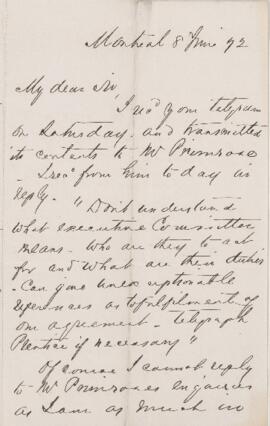 Montreal 8 June 72
My dear Sir,
I recd your telegram
on Saturday and transmitted
its contents to Mr Primrose
- I recd from him to day in
reply - "Don't understand
what executive Committee
means - who are they to act
for and what are their duties
- Can give unexceptionable
references as to fulfilment of
our agreement - telegraph
Prentice if necessary"
Of course I cannot reply
to Mr Primroses enquiries
as I am as much in